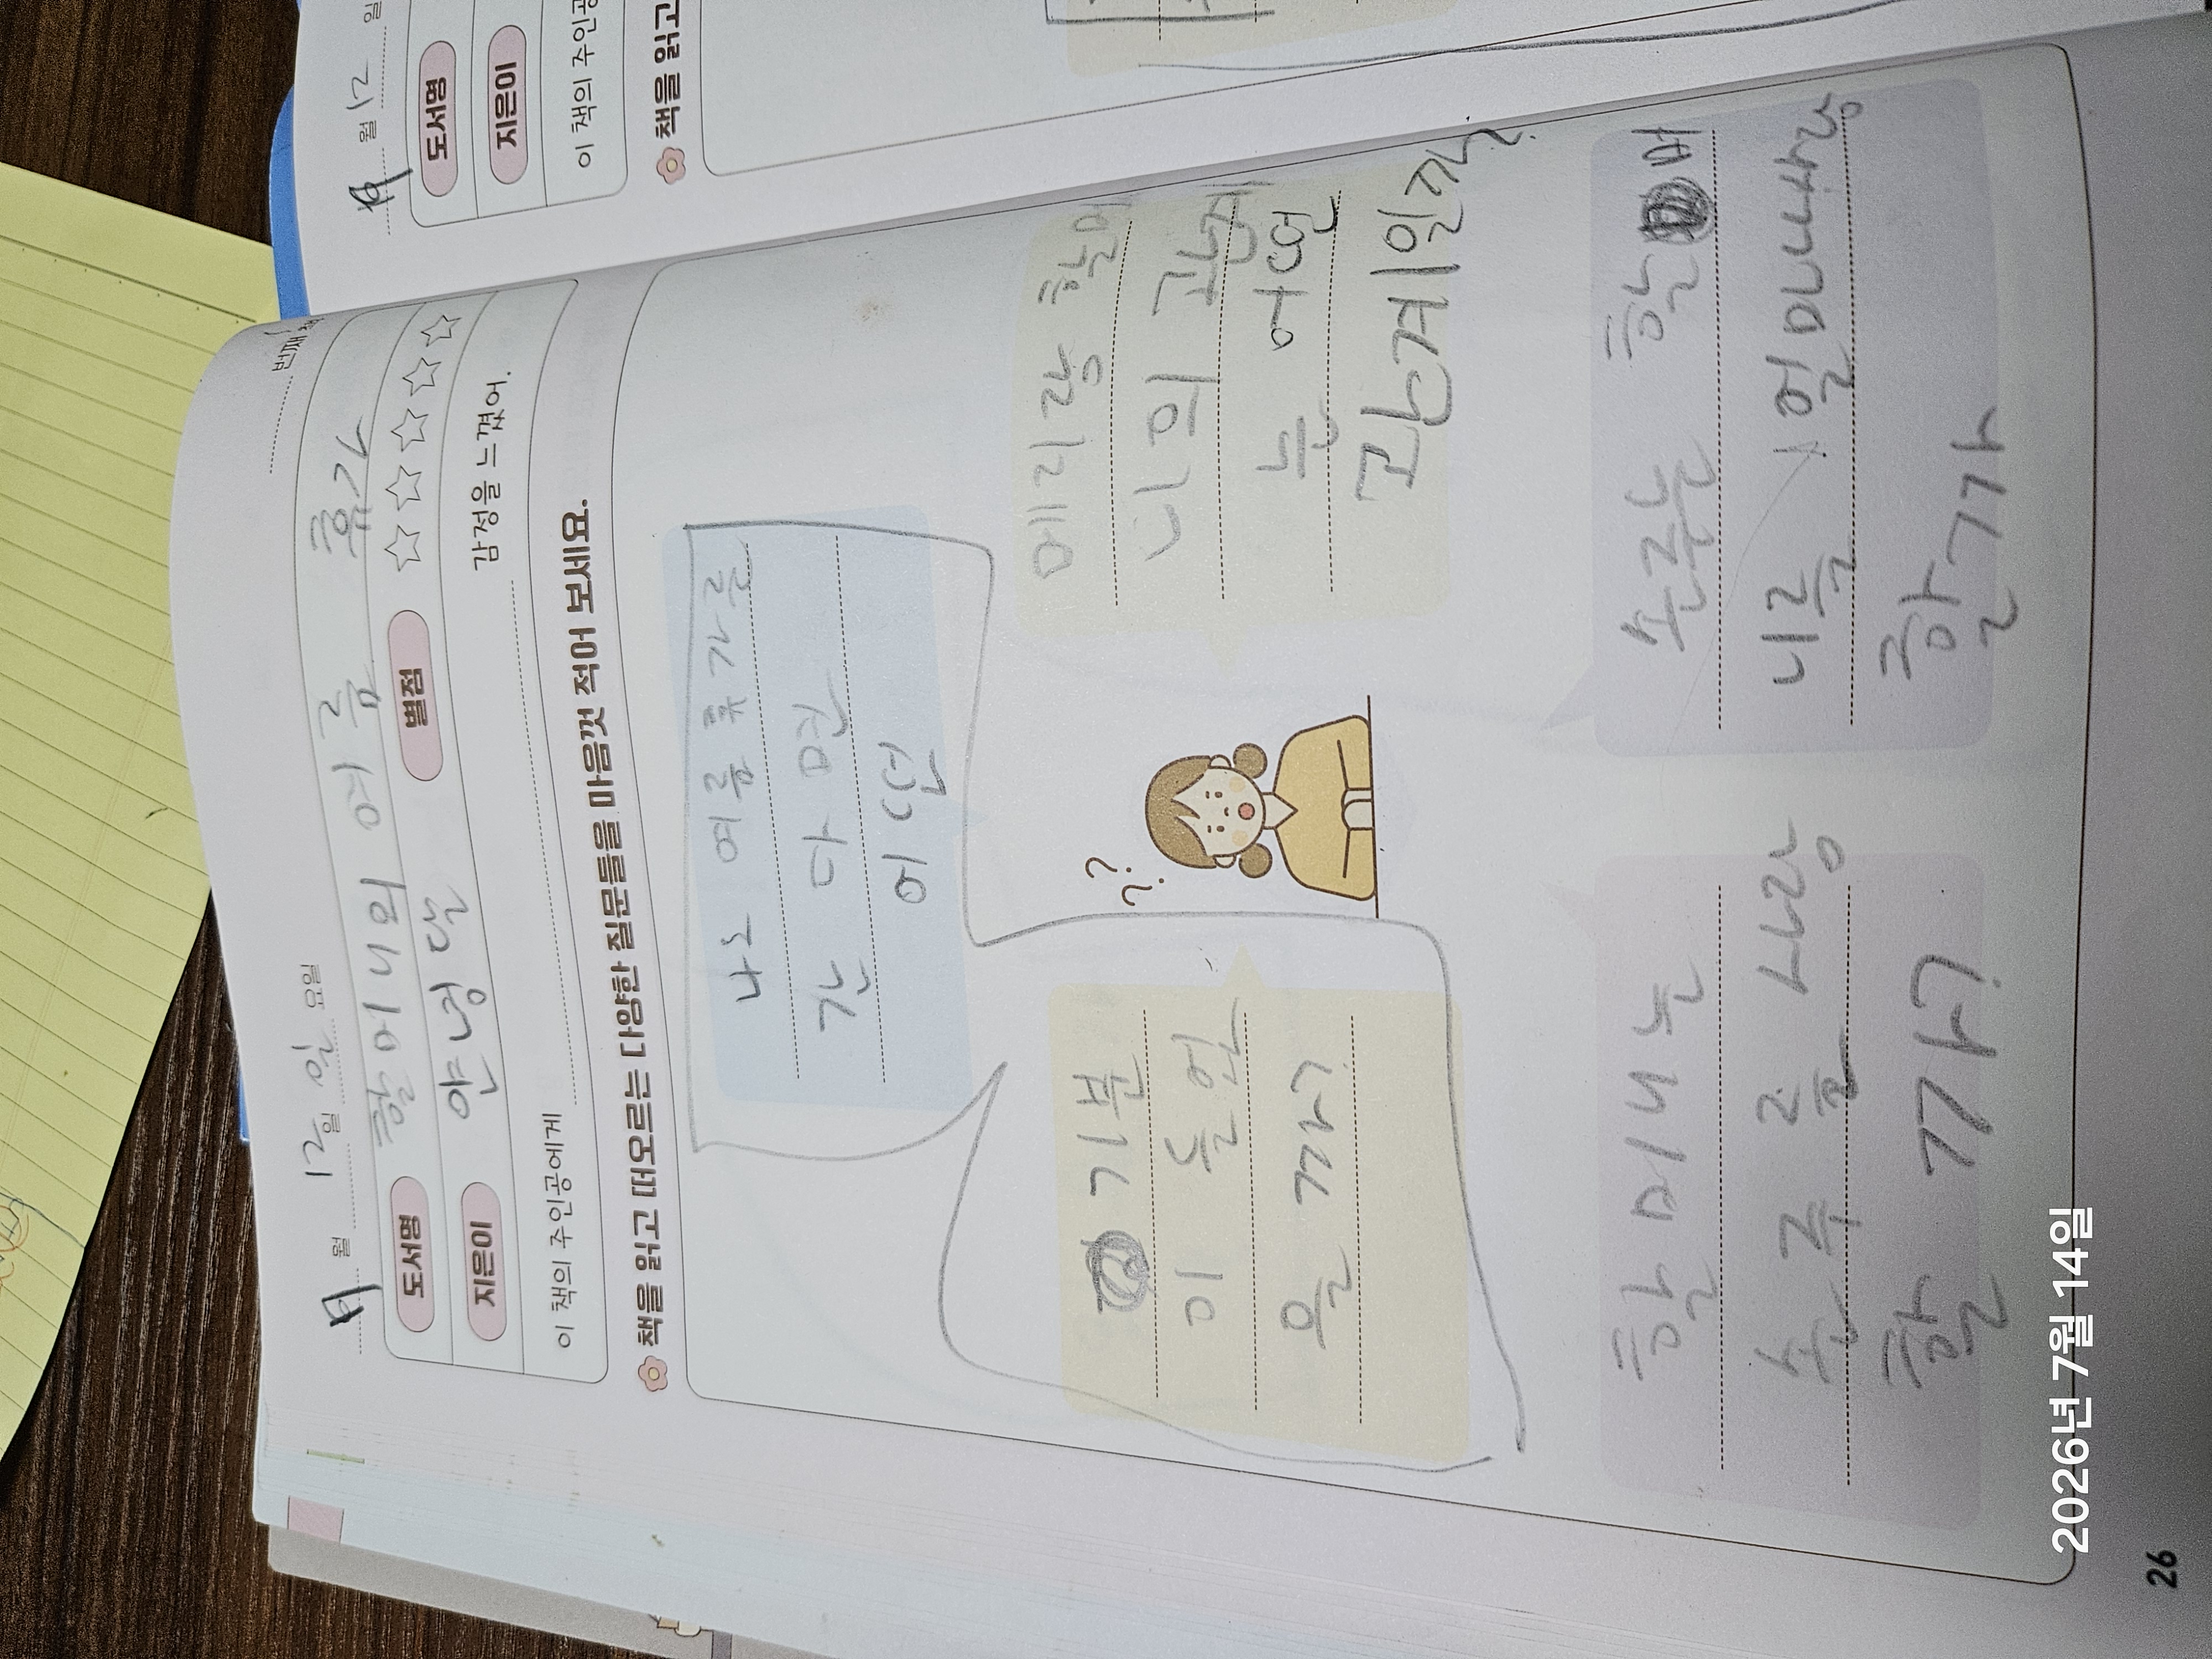 9월 12일 일 요일
번째 책
도서명 할머니의 여름 휴가
지은이 안녕달 별점 ☆☆☆☆☆
이 책의 주인공에게 감정을 느꼈어.
책을 읽고 떠오르는 다양한 질문들을 마음껏 적어 보세요.
나느 여름휴가를
간 다 면
어떤
기분
이 들었
을 까?
메리랑 할머
니의 관계
는 어떤
관계일까?
할머니는
손주를 사랑
할까?
손주는 할머
니를 얼마나 사랑
할까
26
9월 12 일
도서명
지은이
이 책의 주인공
책을 읽고
2026년 7월 14일